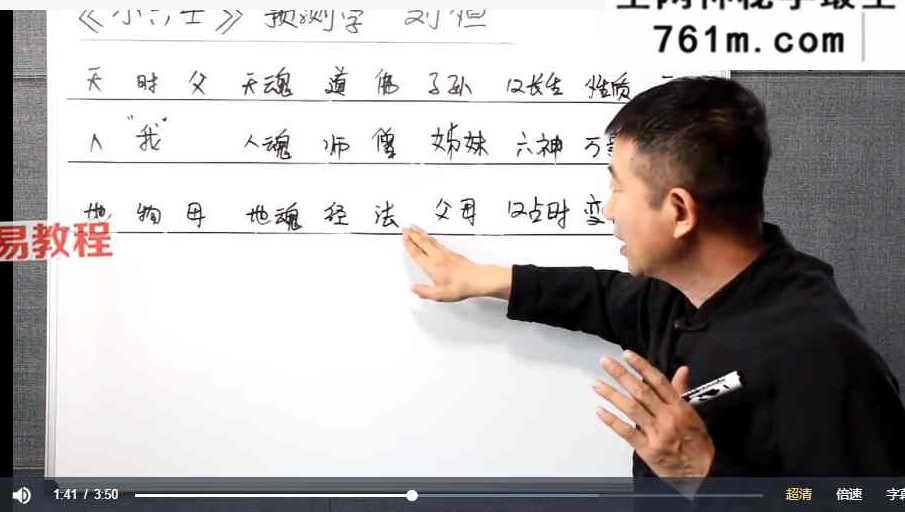 《小六壬》预测学 刘恒
761m.com
天 时 父 天魂 道 佛 子孙 仅长生 性质
人 "我" 人魂 师 僧 姊妹 六神 万
地 物 母 地魂 经 法 父母 仅占时 变
易教程
1:41 / 3:50 超清 倍速 字幕